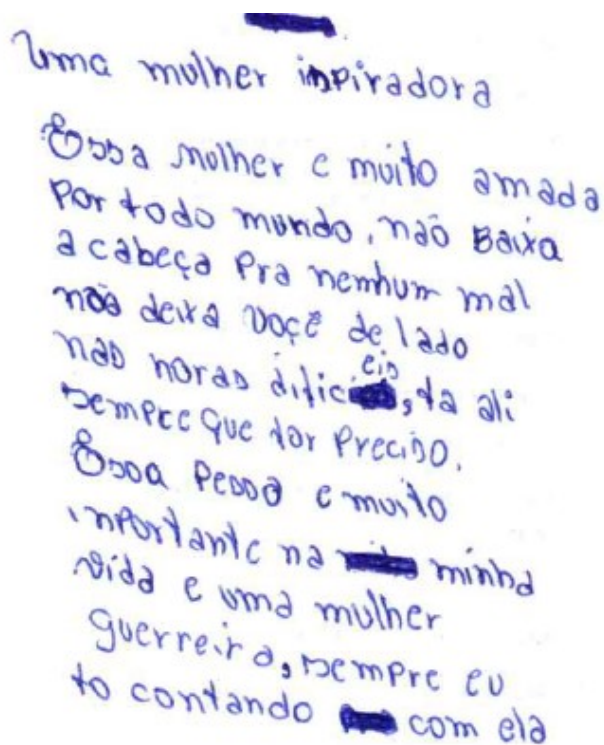 Uma mulher inspiradora
Essa mulher e muito amada
por todo mundo, não baixa
a cabeça pra nenhum mal
não deixa voçê de lado
nas horas dificeis, ta ali
sempre que for preciso.
Essa pessoa e muito
inportante na minha
vida e uma mulher
guerreira, sempre eu
to contando com ela